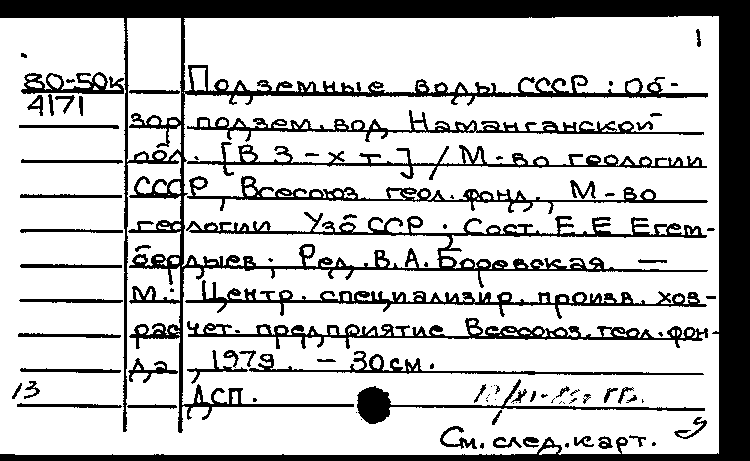 1
80-50к Подземные воды СССР : Об-
4171
зор подзем. вод Наманганской
обл. [В 3-х т.] / М-во геологии
СССР, Всесоюз. геол. фонд, М-во
геологии УзбССР ; Сост. Е.Е Егем-
бердыев ; Ред. В.А. Боревская. —
М. : Центр. специализир. произв. хоз-
расчет. предприятие Всесоюз. геол. фон-
да, 1979. - 30см.
13 ДСП.
См. след. карт.